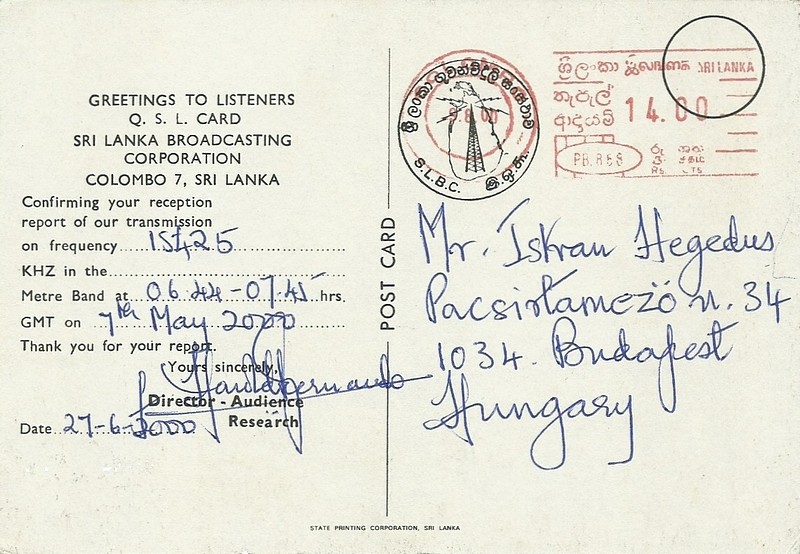 GREETINGS TO LISTENERS
Q. S. L. CARD
SRI LANKA BROADCASTING
CORPORATION
COLOMBO 7, SRI LANKA
Confirming your reception
report of our transmission
on frequency 15425
KHZ in the
Metre Band at 06.44-07.45 hrs.
GMT on 7th May 2000
Thank you for your report.
Yours sincerely,
Director - Audience
Research
Date 27-6-2000
POST CARD
ශ්‍රී ලංකා ගුවන්විදුලි සංස්ථාව
S.L.B.C.
இ.ஒ.கூ.
9.8.00
ශ්‍රී ලංකා இலங்கை SRI LANKA
තැපැල්
ආදායම්
14.00
PB.R58
රු ශත
ரூ சதம்
RS CTS
Mr. Istvan Hegedus
Pacsirtamező u. 34
1034. Budapest
Hungary
STATE PRINTING CORPORATION, SRI LANKA